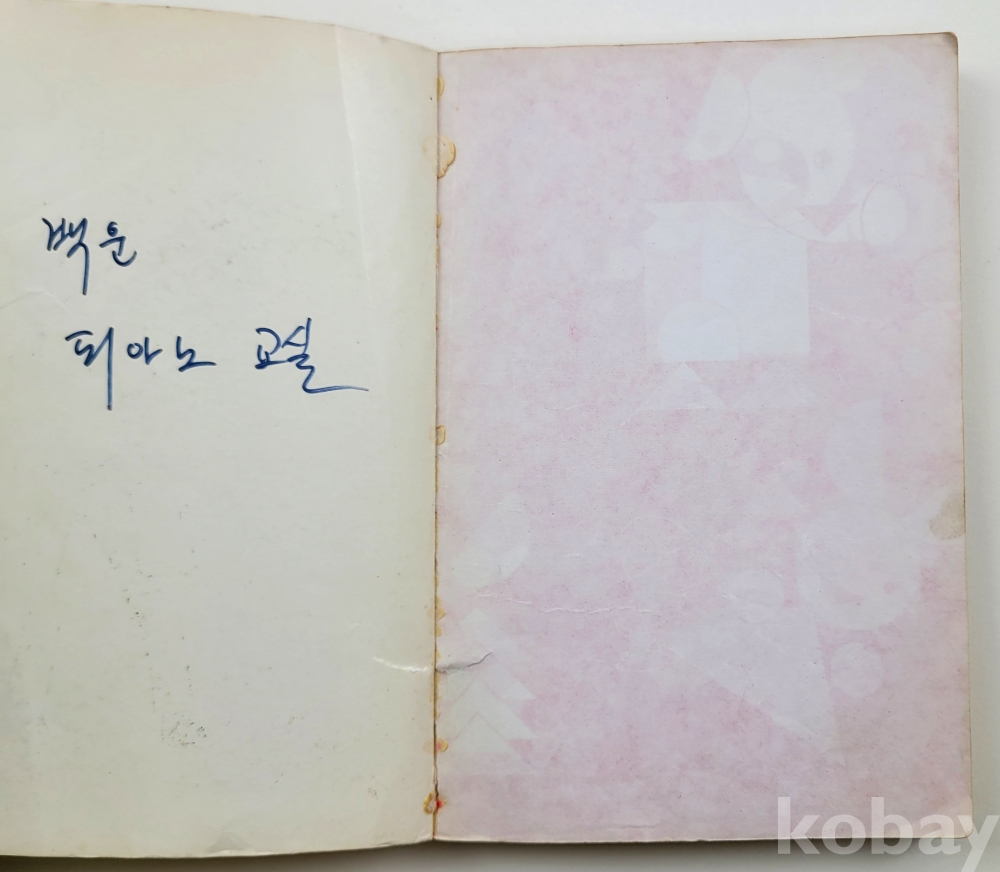 백운
피아노 교실
kobay